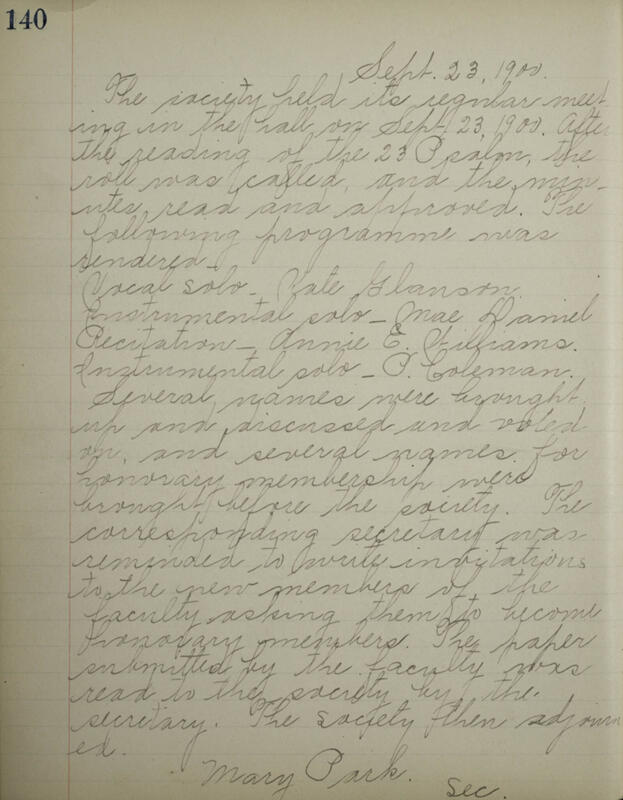 140
Sept. 23, 1900.
The society held its regular meet
ing in the hall on Sept. 23, 1900. After
the reading of the 23 Psalm, the
roll was called, and the min-
utes read and approved. The
following programme was
rendered -
Vocal solo - Kate
Instrumental solo - Mae Daniel
Recitation - Annie E. Williams.
Instrumental solo - P. Coleman.
Several names were brought
up and discussed and voted
on, and several names for
honorary membership were
brought before the society. The
corresponding secretary was
reminded to write invitations
to the new members of the
faculty asking them to become
honorary members. The paper
submitted by the faculty was
read to the society by the
secretary. The society then adjourn
ed.
Mary Park.
Sec.